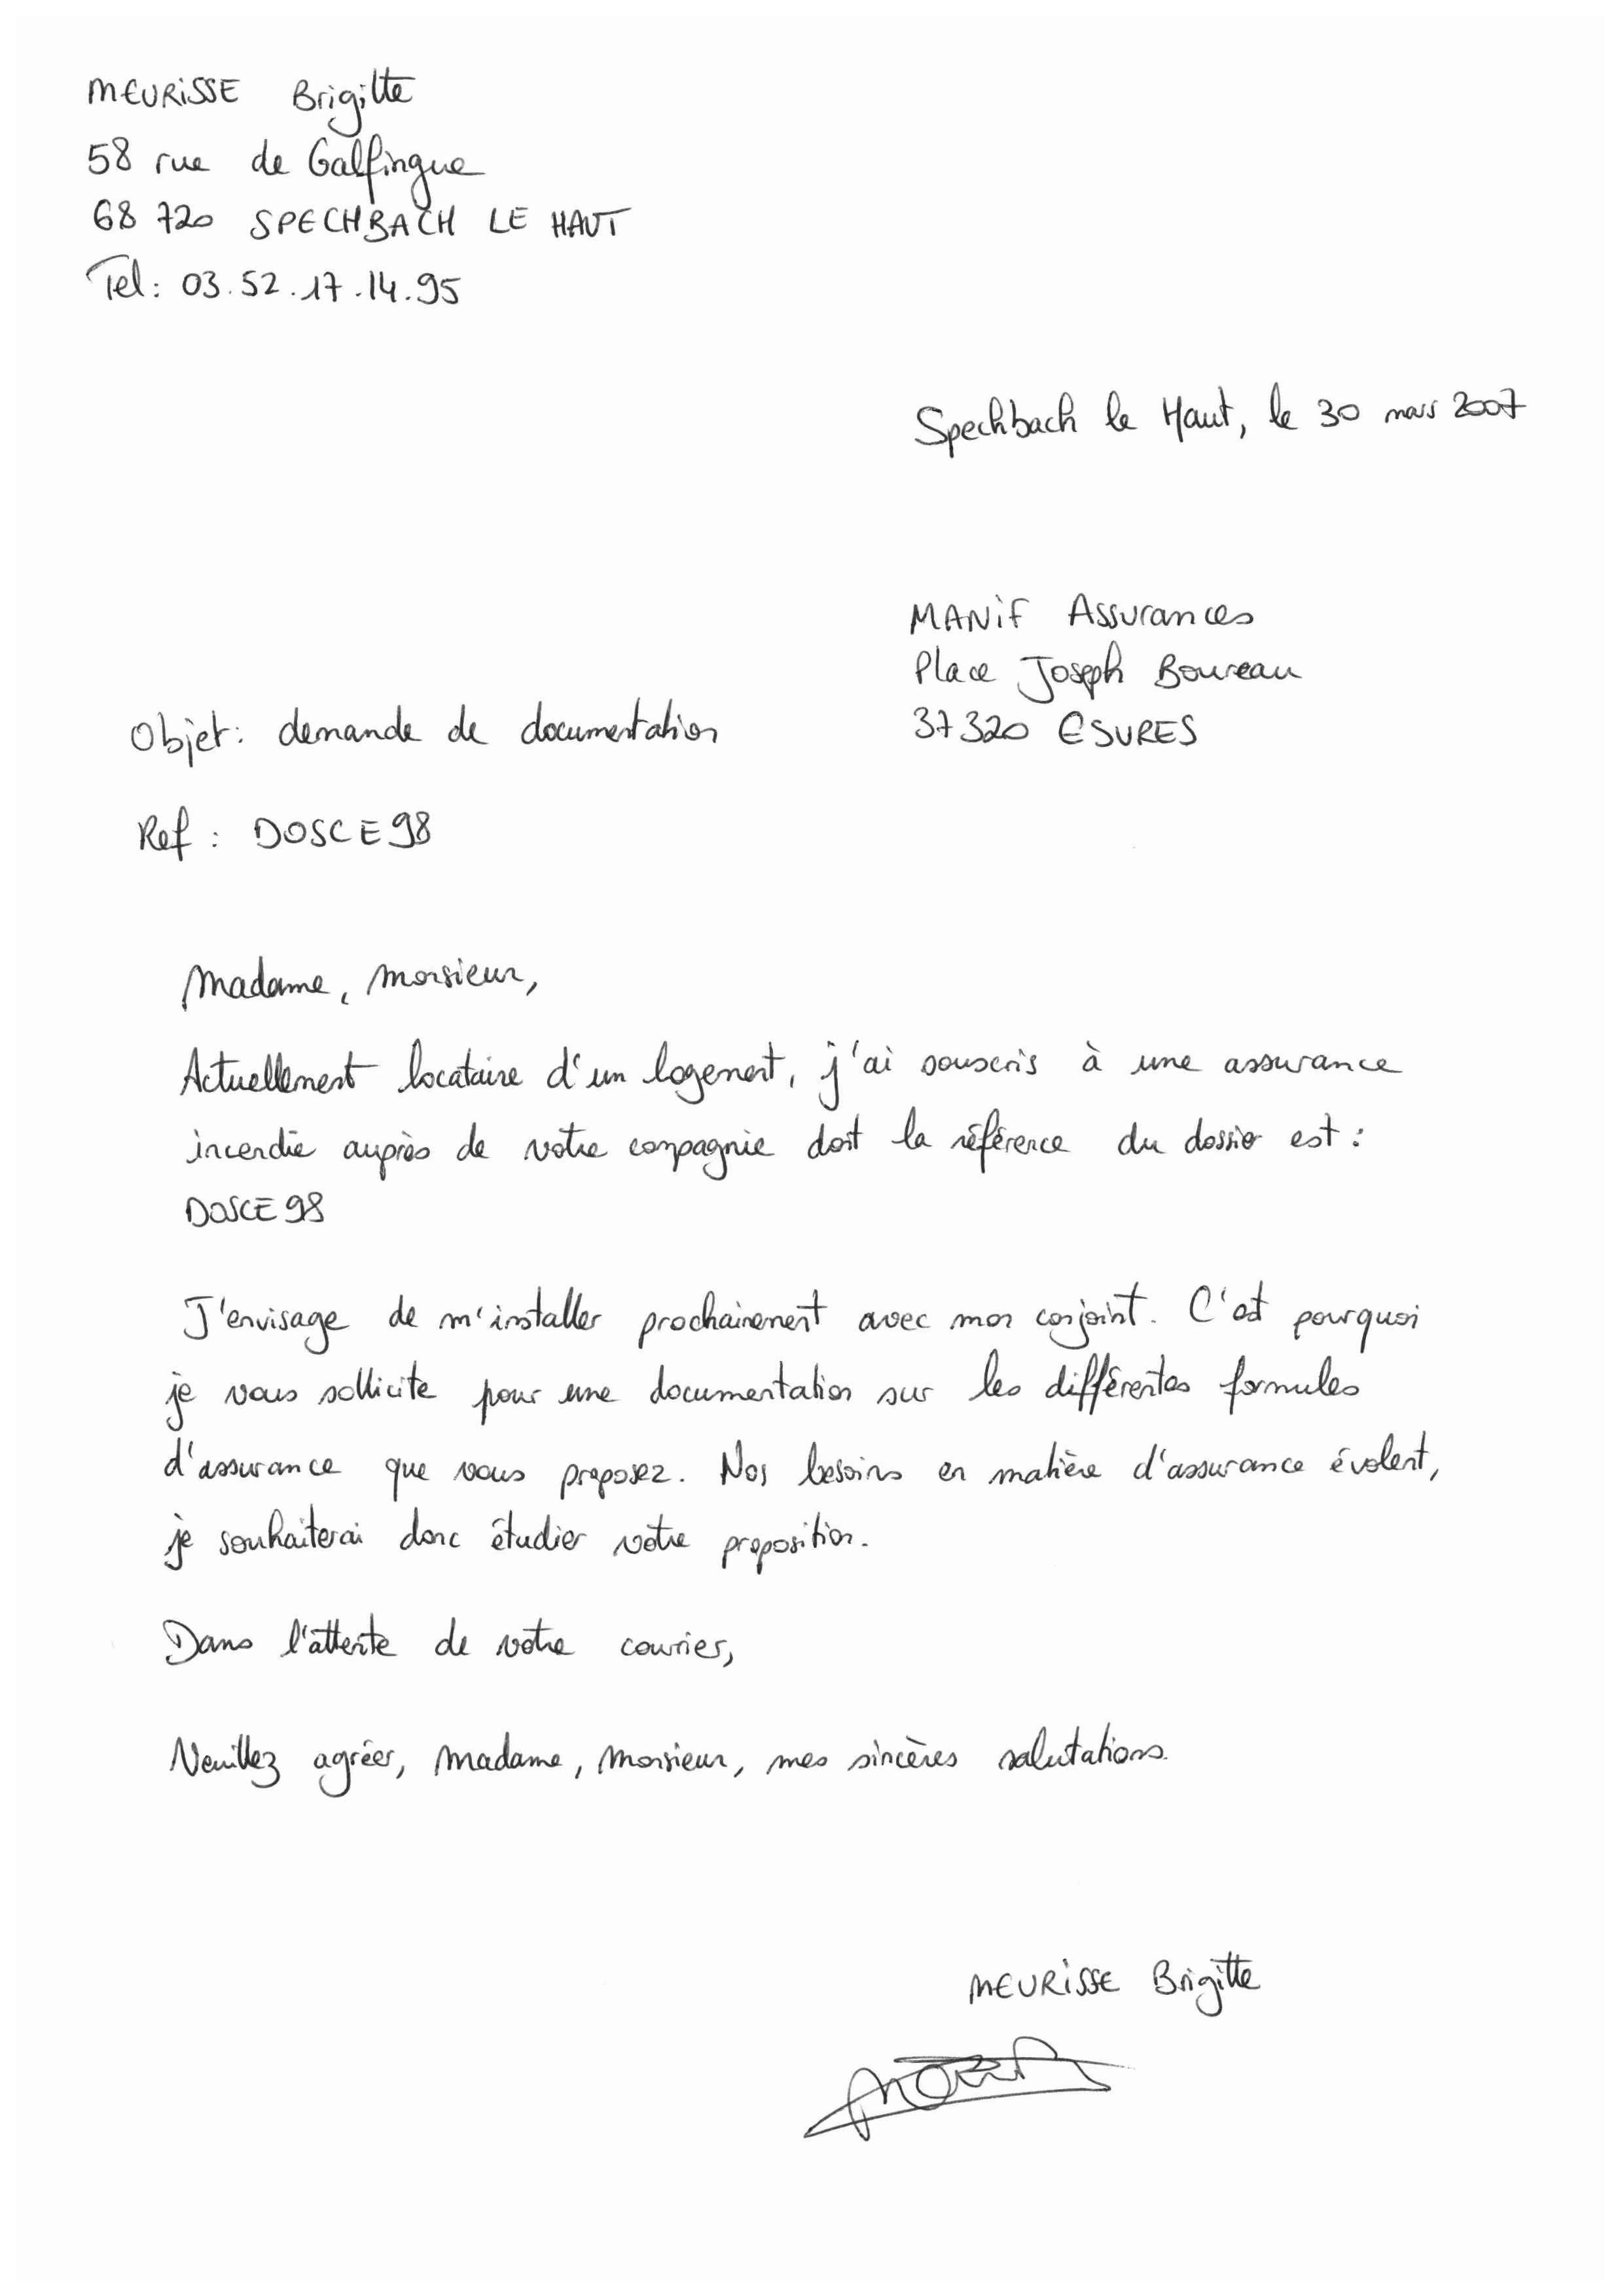 MEURISSE Brigitte
58 rue de Galfingue
68 720 SPECHBACH LE HAUT
Tel: 03.52.17.14.95
Spechbach le Haut, le 30 mars 2007
MANIF Assurances
Place Joseph Boureau
37320 ESURES
Objet: demande de documentation
Ref : DOSCE98
Madame, Monsieur,
Actuellement locataire d'un logement, j'ai souscris à une assurance
incendie auprès de votre compagnie dont la référence du dossier est :
DOSCE98
J'envisage de m'installer prochainement avec mon conjoint. C'est pourquoi
je vous sollicite pour une documentation sur les différentes formules
d'assurance que vous proposez. Nos besoins en matière d'assurance évolent,
je souhaiterai donc étudier votre proposition.
Dans l'attente de votre courrier,
Veuillez agréer, Madame, Monsieur, mes sincères salutations.
MEURISSE Brigitte